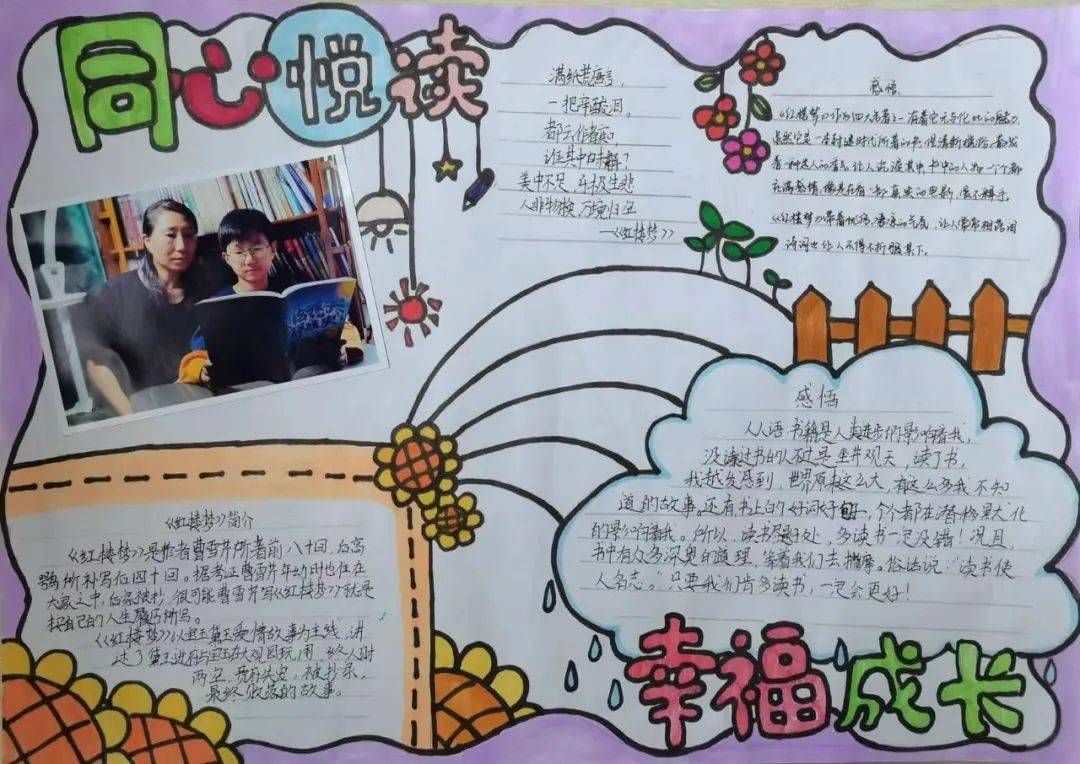 同心悦读
满纸荒唐言，
一把辛酸泪。
都云作者痴，
谁其中味解？
美中不足 乐极生悲
人非物换 万境归空
—《红楼梦》
感悟
《红楼梦》作为四大名著之一有着它无与伦比的魅力，
虽然它是一本封建时代所著的书，但清新脱俗，有
着一种迷人的
充满感情，像是在看一部真实的电影，爱不释手。
《红楼梦》带着
诗词也让人不得不折服其下。
《红楼梦》简介
《红楼梦》是作者曹雪芹所著前八十回，后高
鹗所补写后四十回。据考证曹雪芹年幼时也住在
大家之中，后家被抄，很可能曹雪芹写《红楼梦》就是
把自己的人生履历所写。
《红楼梦》以宝玉黛玉爱情故事为主线，讲
述了黛玉进府与宝玉在大观园玩闹，终人财
两空，贾府失势，被抄家，
最终败落的故事。
感悟
人人语：书籍是人类进步的影响着我，
没读过书的人不过是坐井观天，读了书，
我越发感到，世界原来这么大，有这么多我不知
道的故事。还有书上的好词好句，一个个都在潜移默化
的影响着我。所以，读书是好处，多读书一定没错！况且，
书中有众多深奥的道理，等着我们去揣摩。俗话说：“读书使
人多志。”只要我们肯多读书，一定会更好！
幸福成长